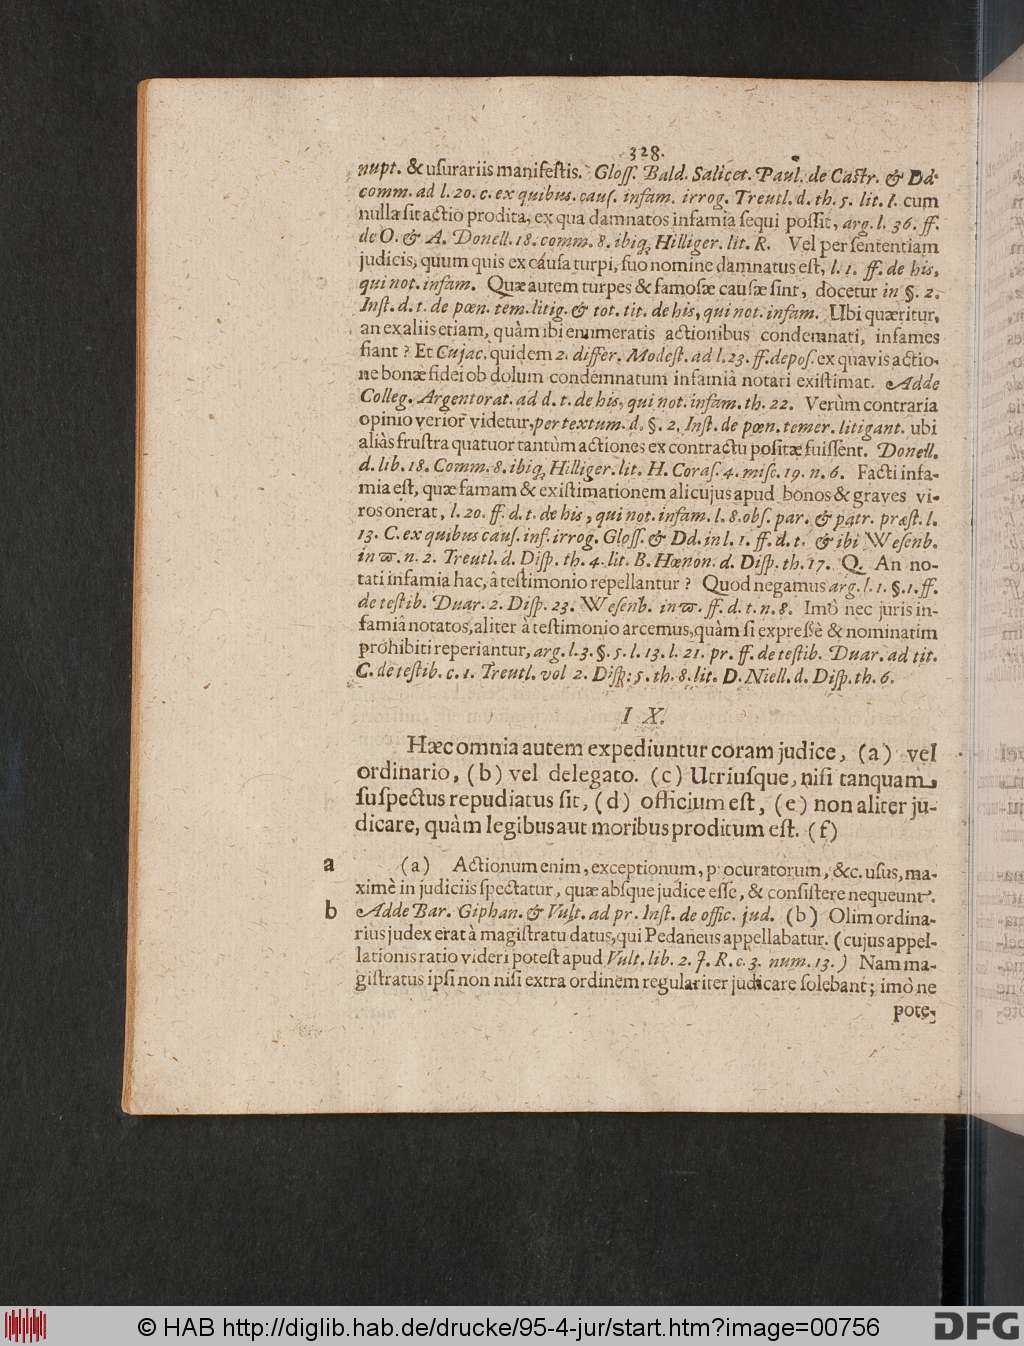 328.
nupt. & usurariis manifestis. Gloss. Bald. Salicet. Paul. de Castr. & Dd.
comm. ad l. 20. c. ex quibus. caus. infam. irrog. Treutl. d. th. 5. lit. l. cum
nulla sit actio prodita, ex qua damnatos infamia sequi possit, arg. l. 36. ff.
de O. & A. Donell. 18. comm. 8. ibiq; Hilliger. lit. R. Vel per sententiam
judicis, quum quis ex causa turpi, suo nomine damnatus est, l. 1. ff. de his,
qui not. infam. Quæ autem turpes & famosæ causæ sint, docetur in §. 2.
Inst. d. t. de pœn. tem. litig. & tot. tit. de his, qui not. infam. Ubi quæritur,
an ex aliis etiam, quàm ibi enumeratis actionibus condemnati, infames
fiant? Et Cujac. quidem 2. differ. Modest. ad l. 23. ff. depos. ex quavis actio-
ne bonæ fidei ob dolum condemnatum infamiâ notari existimat. Adde
Colleg. Argentorat. ad d. t. de his, qui not. infam. th. 22. Verùm contraria
opinio verior videtur, per textum. d. §. 2. Inst. de pœn. temer. litigant. ubi
aliàs frustra quatuor tantùm actiones ex contractu positæ fuissent. Donell.
d. lib. 18. Comm. 8. ibiq; Hilliger. lit. H. Coras. 4. misc. 19. n. 6. Facti infa-
mia est, quæ famam & existimationem alicujus apud bonos & graves vi-
ros onerat, l. 20. ff. d. t. de his, qui not. infam. l. 8. obs. par. & patr. præst. l.
13. C. ex quibus caus. inf. irrog. Gloss. & Dd. in l. 1. ff. d. t. & ibi Wesenb.
in ϖ. n. 2. Treutl. d. Disp. th. 4. lit. B. Hœnon. d. Disp. th. 17. Q. An no-
tati infamia hac, â testimonio repellantur? Quod negamus arg. l. 1. §. 1. ff.
de testib. Duar. 2. Disp. 23. Wesenb. in ϖ. ff. d. t. n. 8. Imò nec juris in-
famiâ notatos, aliter à testimonio arcemus, quàm si expressè & nominatim
prohibiti reperiantur, arg. l. 3. §. 5. l. 13. l. 21. pr. ff. de testib. Duar. ad tit.
C. de testib. c. 1. Treutl. vol 2. Disp: 5. th. 8. lit. D. Niell. d. Disp. th. 6.
I X.
Hæc omnia autem expediuntur coram judice, (a) vel
ordinario, (b) vel delegato. (c) Utriusque, nisi tanquam
suspectus repudiatus sit, (d) officium est, (e) non aliter ju-
dicare, quàm legibus aut moribus proditum est. (f)
a (a) Actionum enim, exceptionum, procuratorum, &c. usus, ma-
ximè in judiciis spectatur, quæ absque judice esse, & consistere nequeunt.
b Adde Bar. Giphan. & Vult. ad pr. Inst. de offic. jud. (b) Olim ordina-
rius judex erat à magistratu datus, qui Pedaneus appellabatur. (cujus appel-
lationis ratio videri potest apud Vult. lib. 2. J. R. c. 3. num. 13.) Nam ma-
gistratus ipsi non nisi extra ordinem regulariter judicare solebant; imò ne
pote-
© HAB http://diglib.hab.de/drucke/95-4-jur/start.htm?image=00756
DFG